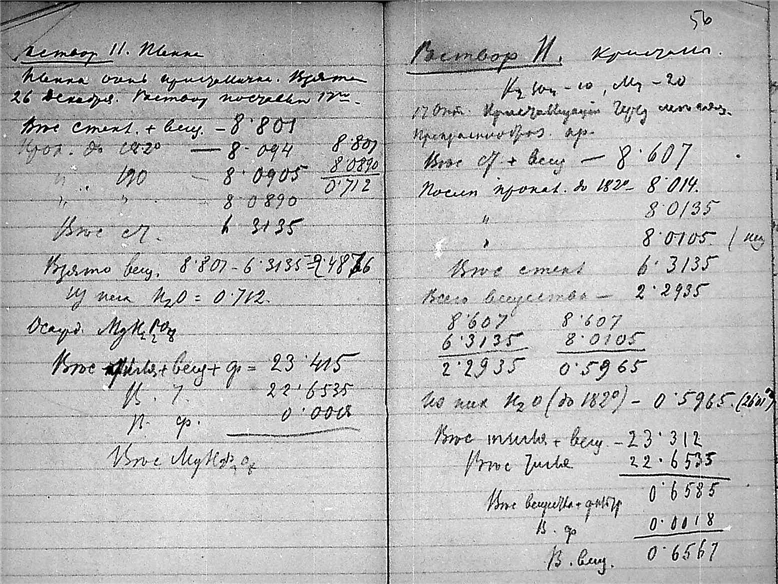 Раствор II. Пленка
Пленка очень кристаллична. Взята
26 декабря. Раствор поставлен
Вес стекл. + вещ. - 8·801
Прок. до 182° — 8·094
" " 190 — 8·0905
" " 8·0890
8·801
8·0890
0·712
Вес ст. 6·3135
Взято вещ. 8·801 - 6·3135 = 2·4876
Из них H₂O = 0·712.
Осажд.
Вес тигля + вещ + ф = 23·415
В. т. 22·6535
В. ф. 0·0018
Вес
56
Раствор II. Кристаллы.
- 10, - 20
17 Окт.
Вес ст + вещ — 8·607
После прокал. до 182° - 8·014.
" 8·0135
" 8·0105
Вес стекл 6·3135
Всего вещества — 2·2935
8·607 8·607
6·3135 8·0105
2·2935 0·5965
Из них H₂O (до 182°) - 0·5965.
Вес тигля + вещ - 23·312
Вес тигля 22·6535
Вес вещества + фильтр 0·6585
В. ф 0·0018
В. вещ. 0·6567